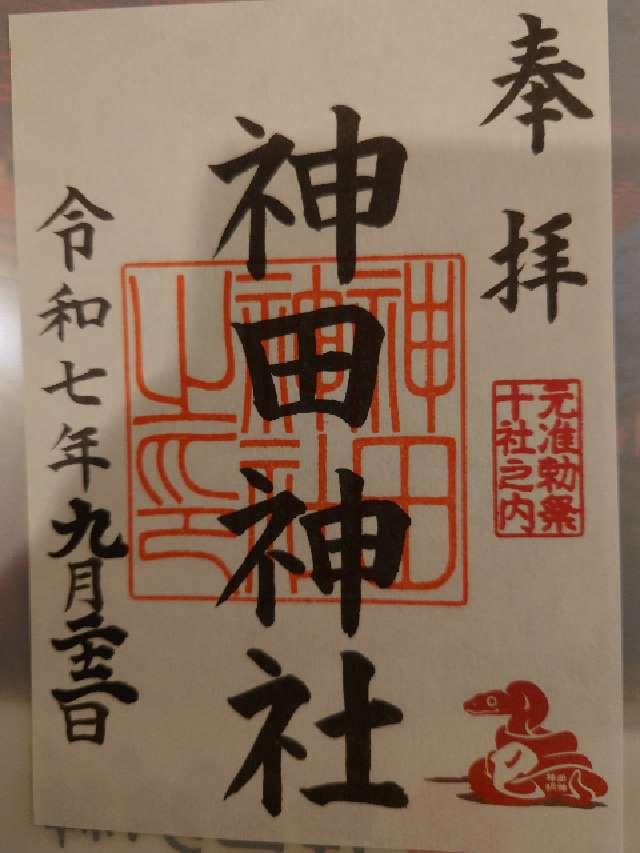 奉拝
元准勅祭
十社之内
神田神社
神田
神社
之印
令和七年九月二十三日
巳